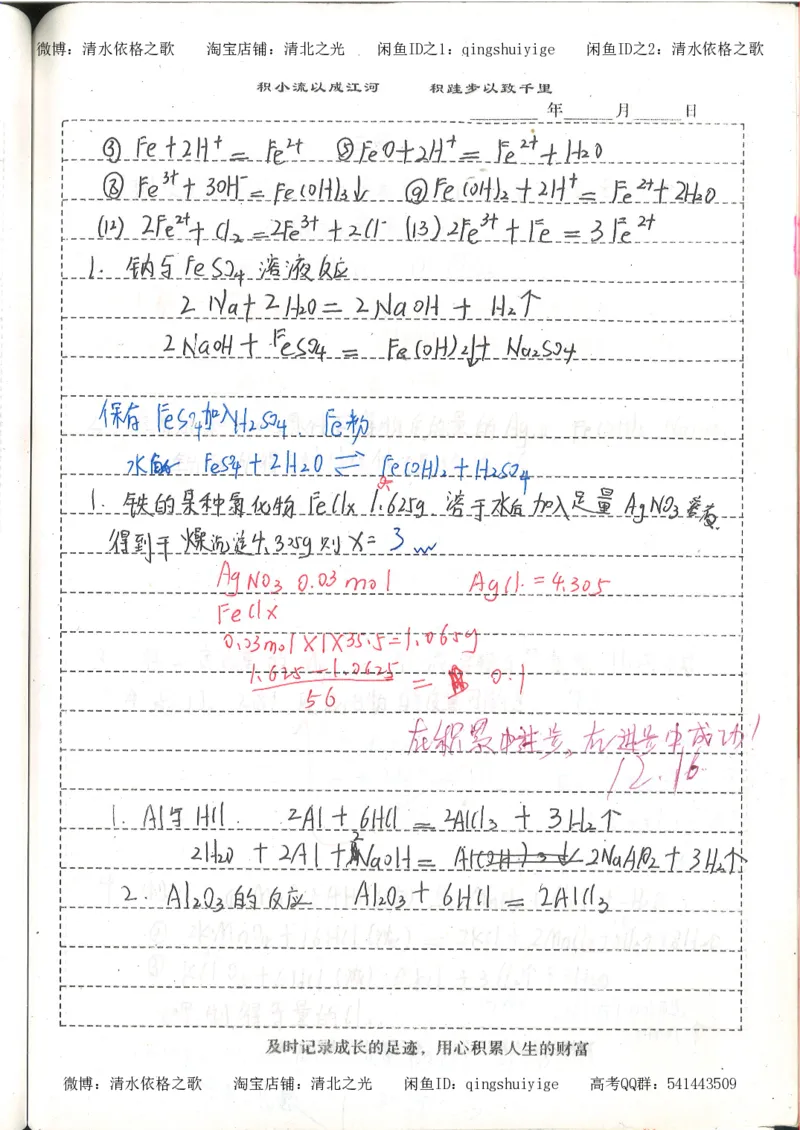 微博：清水依格之歌 淘宝店铺：清北之光 闲鱼ID之1：qingshuiyige 闲鱼ID之2：清水依格之歌
积小流以成江河 积跬步以致千里
年 月 日
③ Fe+2H⁺ = Fe²⁺ ⑤ FeO+2H⁺ = Fe²⁺+H₂O
⑧ Fe³⁺+3OH⁻=Fe(OH)₃↓ ⑨ Fe(OH)₂+2H⁺= Fe²⁺+2H₂O
(12) 2Fe²⁺+Cl₂=2Fe³⁺+2Cl⁻ (13) 2Fe³⁺+Fe = 3Fe²⁺
1. 钠与FeSO₄溶液反应
2Na+2H₂O= 2NaOH + H₂↑
2NaOH+ FeSO₄ = Fe(OH)₂↓+ Na₂SO₄
保存FeSO₄加入H₂SO₄、Fe粉
水解 FeSO₄+2H₂O ⇌ Fe(OH)₂+H₂SO₄
1. 铁的某种氯化物FeClx 1.625g 溶于水后加入足量AgNO₃
得到干燥沉淀4.325g则X= 3
AgNO₃ 0.03mol AgCl. =4.305
FeClx
0.03mol×1×35.5=1.065g
1.625-1.0625
56 = 0.1
在积累中进步，在进步中成功！
12.16
1. Al与HCl. 2Al+6HCl=2AlCl₃ + 3H₂↑
2H₂O + 2Al+2NaOH= 2NaAlO₂+3H₂↑
2. Al₂O₃的反应 Al₂O₃+ 6HCl = 2AlCl₃
及时记录成长的足迹，用心积累人生的财富
微博：清水依格之歌 淘宝店铺：清北之光 闲鱼ID：qingshuiyige 高考QQ群：541443509